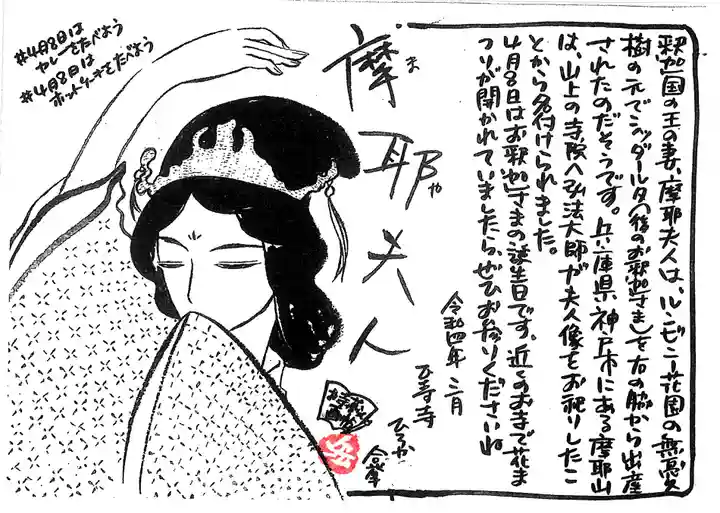 釈迦国の王の妻、摩耶夫人は、ルンビニー花園の無憂
樹の元でシッダールタ(後のお釈迦さま)を右の脇から出産
されたのだそうです。兵庫県神戸市にある摩耶山
は、山上の寺院へ弘法大師が夫人像をお祀りしたこ
とから名付けられました。
4月8日はお釈迦さまの誕生日です。近くのお寺で花ま
つりが開かれていましたら、ぜひお参りくださいね
令和四年 三月
ひろか 合掌
摩耶夫人
ま
や
#4月8日は
カレーをたべよう
#4月8日は
ホットケーキをたべよう